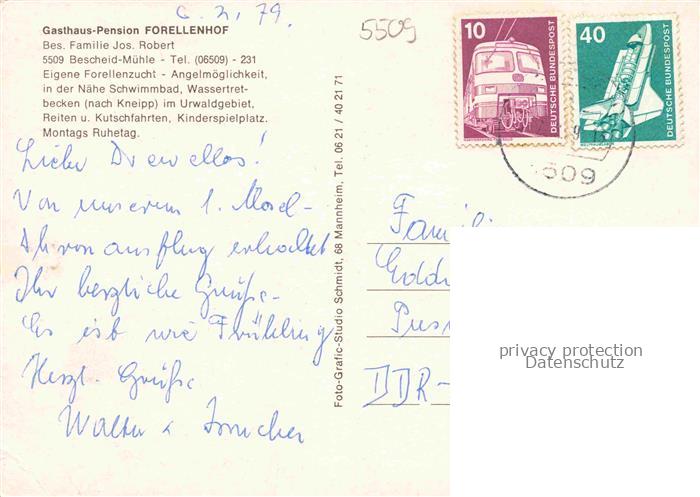 6. XI. 79.
5509
Gasthaus-Pension FORELLENHOF
Bes. Familie Jos. Robert
5509 Bescheid-Mühle - Tel. (06509) - 231
Eigene Forellenzucht - Angelmöglichkeit,
in der Nähe Schwimmbad, Wassertret-
becken (nach Kneipp) im Urwaldgebiet,
Reiten u. Kutschfahrten, Kinderspielplatz.
Montags Ruhetag.
10
DEUTSCHE BUNDESPOST
40
DEUTSCHE BUNDESPOST
509
Liebe
Von unserem 1. Mosel-
Ahr von ausflug erhaltet
Ihr herzliche Grüße.
Es ist wie Frühling
Herzl. Grüße
Walter &
Foto-Grafic-Studio Schmidt, 68 Mannheim, Tel. 06 21 / 40 21 71
Famili
DDR-
privacy protection
Datenschutz